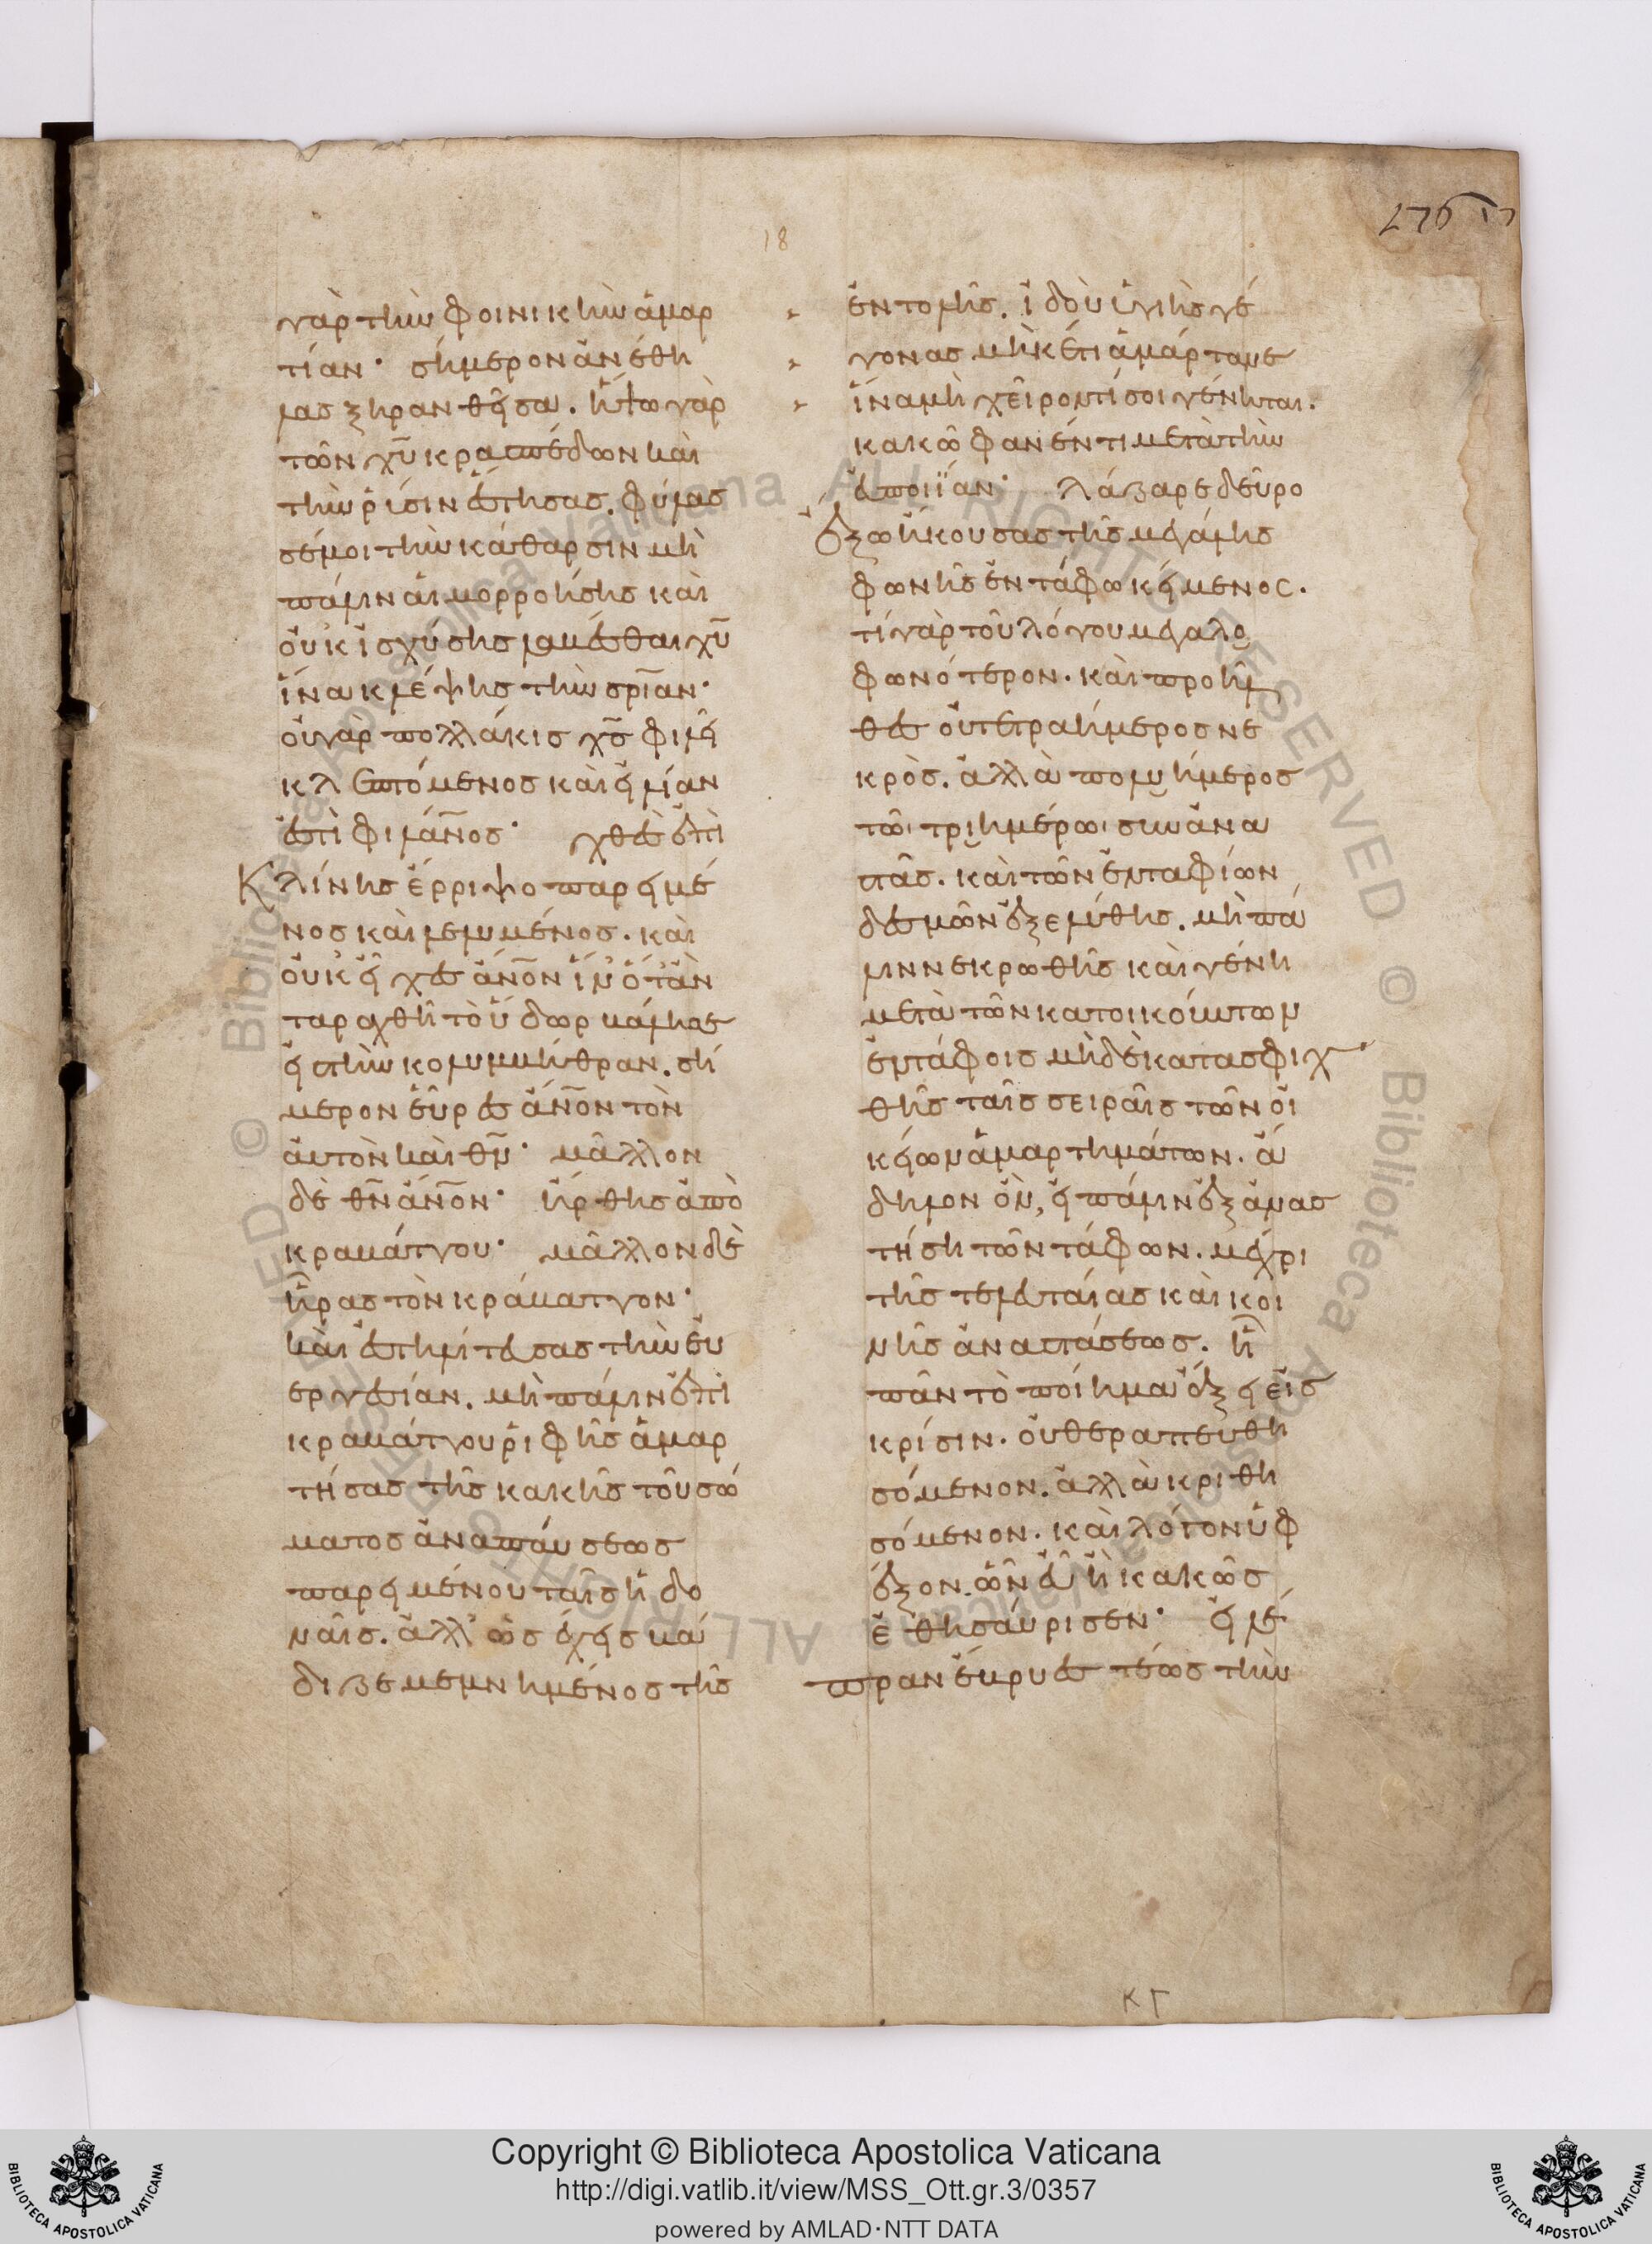 276
18
γὰρ τὴν φοινικὴν ἁμαρ
τίαν· σήμερον ἀνέθη
λας ξηρανθεῖσα. ἥψω γὰρ
τῶν χ͞υ κρασπέδων καὶ
τὴν ῥύσιν ἔστησας. φύλασ
σέ μοι τὴν κάθαρσιν μὴ
πάλιν αἱμορροήσης καὶ
οὐκ ἰσχύσης λαβέσθαι χ͞υ
ἵνα κλέψης τὴν σ͞ριαν·
οὐ γὰρ πολλάκις χ͞ς φιλεῖ
κλεπτόμενος καὶ εἰ λίαν
ἐστὶ φιλάν͞ος· χθὲς ἐπὶ
Κλίνης ἔρριψο παρειμέ
νος καὶ λελυμένος. καὶ
οὐκ εἶχες ἄν͞ον ἵν' ὅτ' ἂν
ταραχθῆ τὸ ὕδωρ βάλη σε
εἰς τὴν κολυμβήθραν. σή
μερον εὗρες ἄν͞ον τὸν
αὐτὸν καὶ θ͞ν· μᾶλλον
δὲ θ͞ν ἄν͞ον· ἤρθης ἀπὸ
κραβάττου· μᾶλλον δὲ
ἦρας τὸν κράβαττον·
καὶ ἐστηλίτευσας τὴν εὐ
εργεσίαν. μὴ πάλιν ἐπὶ
κραβάττου ῥιφῆς ἁμαρ
τήσας τῆς κακῆς τοῦ σώ
ματος ἀναπαύσεως
παρειμένου ταῖς ἡδο
ναῖς. ἀλλ' ὡς ἔχεις βά
διζε μεμνημένος τῆς
ἐντολῆς. ἰδοὺ ὑγιὴς γέ
γονας μηκέτι ἁμάρτανε
ἵνα μὴ χεῖρόν τί σοι γένηται.
κακῶ φανέντι μετὰ τὴν
εὐποιΐαν· λάζαρε δεῦρο
ἔξω ἤκουσας τῆς μεγάλης
φωνῆς ἐν τάφω κείμενος.
τί γὰρ τοῦ λόγου μεγαλο
φωνότερον. καὶ προῆλ
θες οὐ τετραήμερος νε
κρὸς. ἀλλὰ πολυήμερος
τῶι τριημέρωι συνανα
στᾶς. καὶ τῶν ἐνταφίων
δεσμῶν ἐξελύθης. μὴ πά
λιν νεκρωθῆς καὶ γένη
μετὰ τῶν κατοικούντων
ἐν τάφοις μὴ δὲ κατασφιχ
θῆς ταῖς σειραῖς τῶν οἰ
κείων ἁμαρτημάτων. ἄ
δηλον ὂν, εἰ πάλιν ἐξανασ
τήση τῶν τάφων. μέχρι
τῆς τελευταίας καὶ κοι
νῆς ἀναστάσεως. ἣ
πᾶν τὸ ποίημα ἄξει εἰς
κρίσιν. οὐ θεραπευθη
σόμενον. ἀλλὰ κριθη
σόμενον. καὶ λόγον ὑφ
έξον ὧν εὖ ἢ κακῶς
ἐθησαύρισεν· εἰ λέ
πραν ἔβρυες τέως τὴν
ΚΓ
Copyright © Biblioteca Apostolica Vaticana
http://digi.vatlib.it/view/MSS_Ott.gr.3/0357
powered by AMLAD·NTT DATA